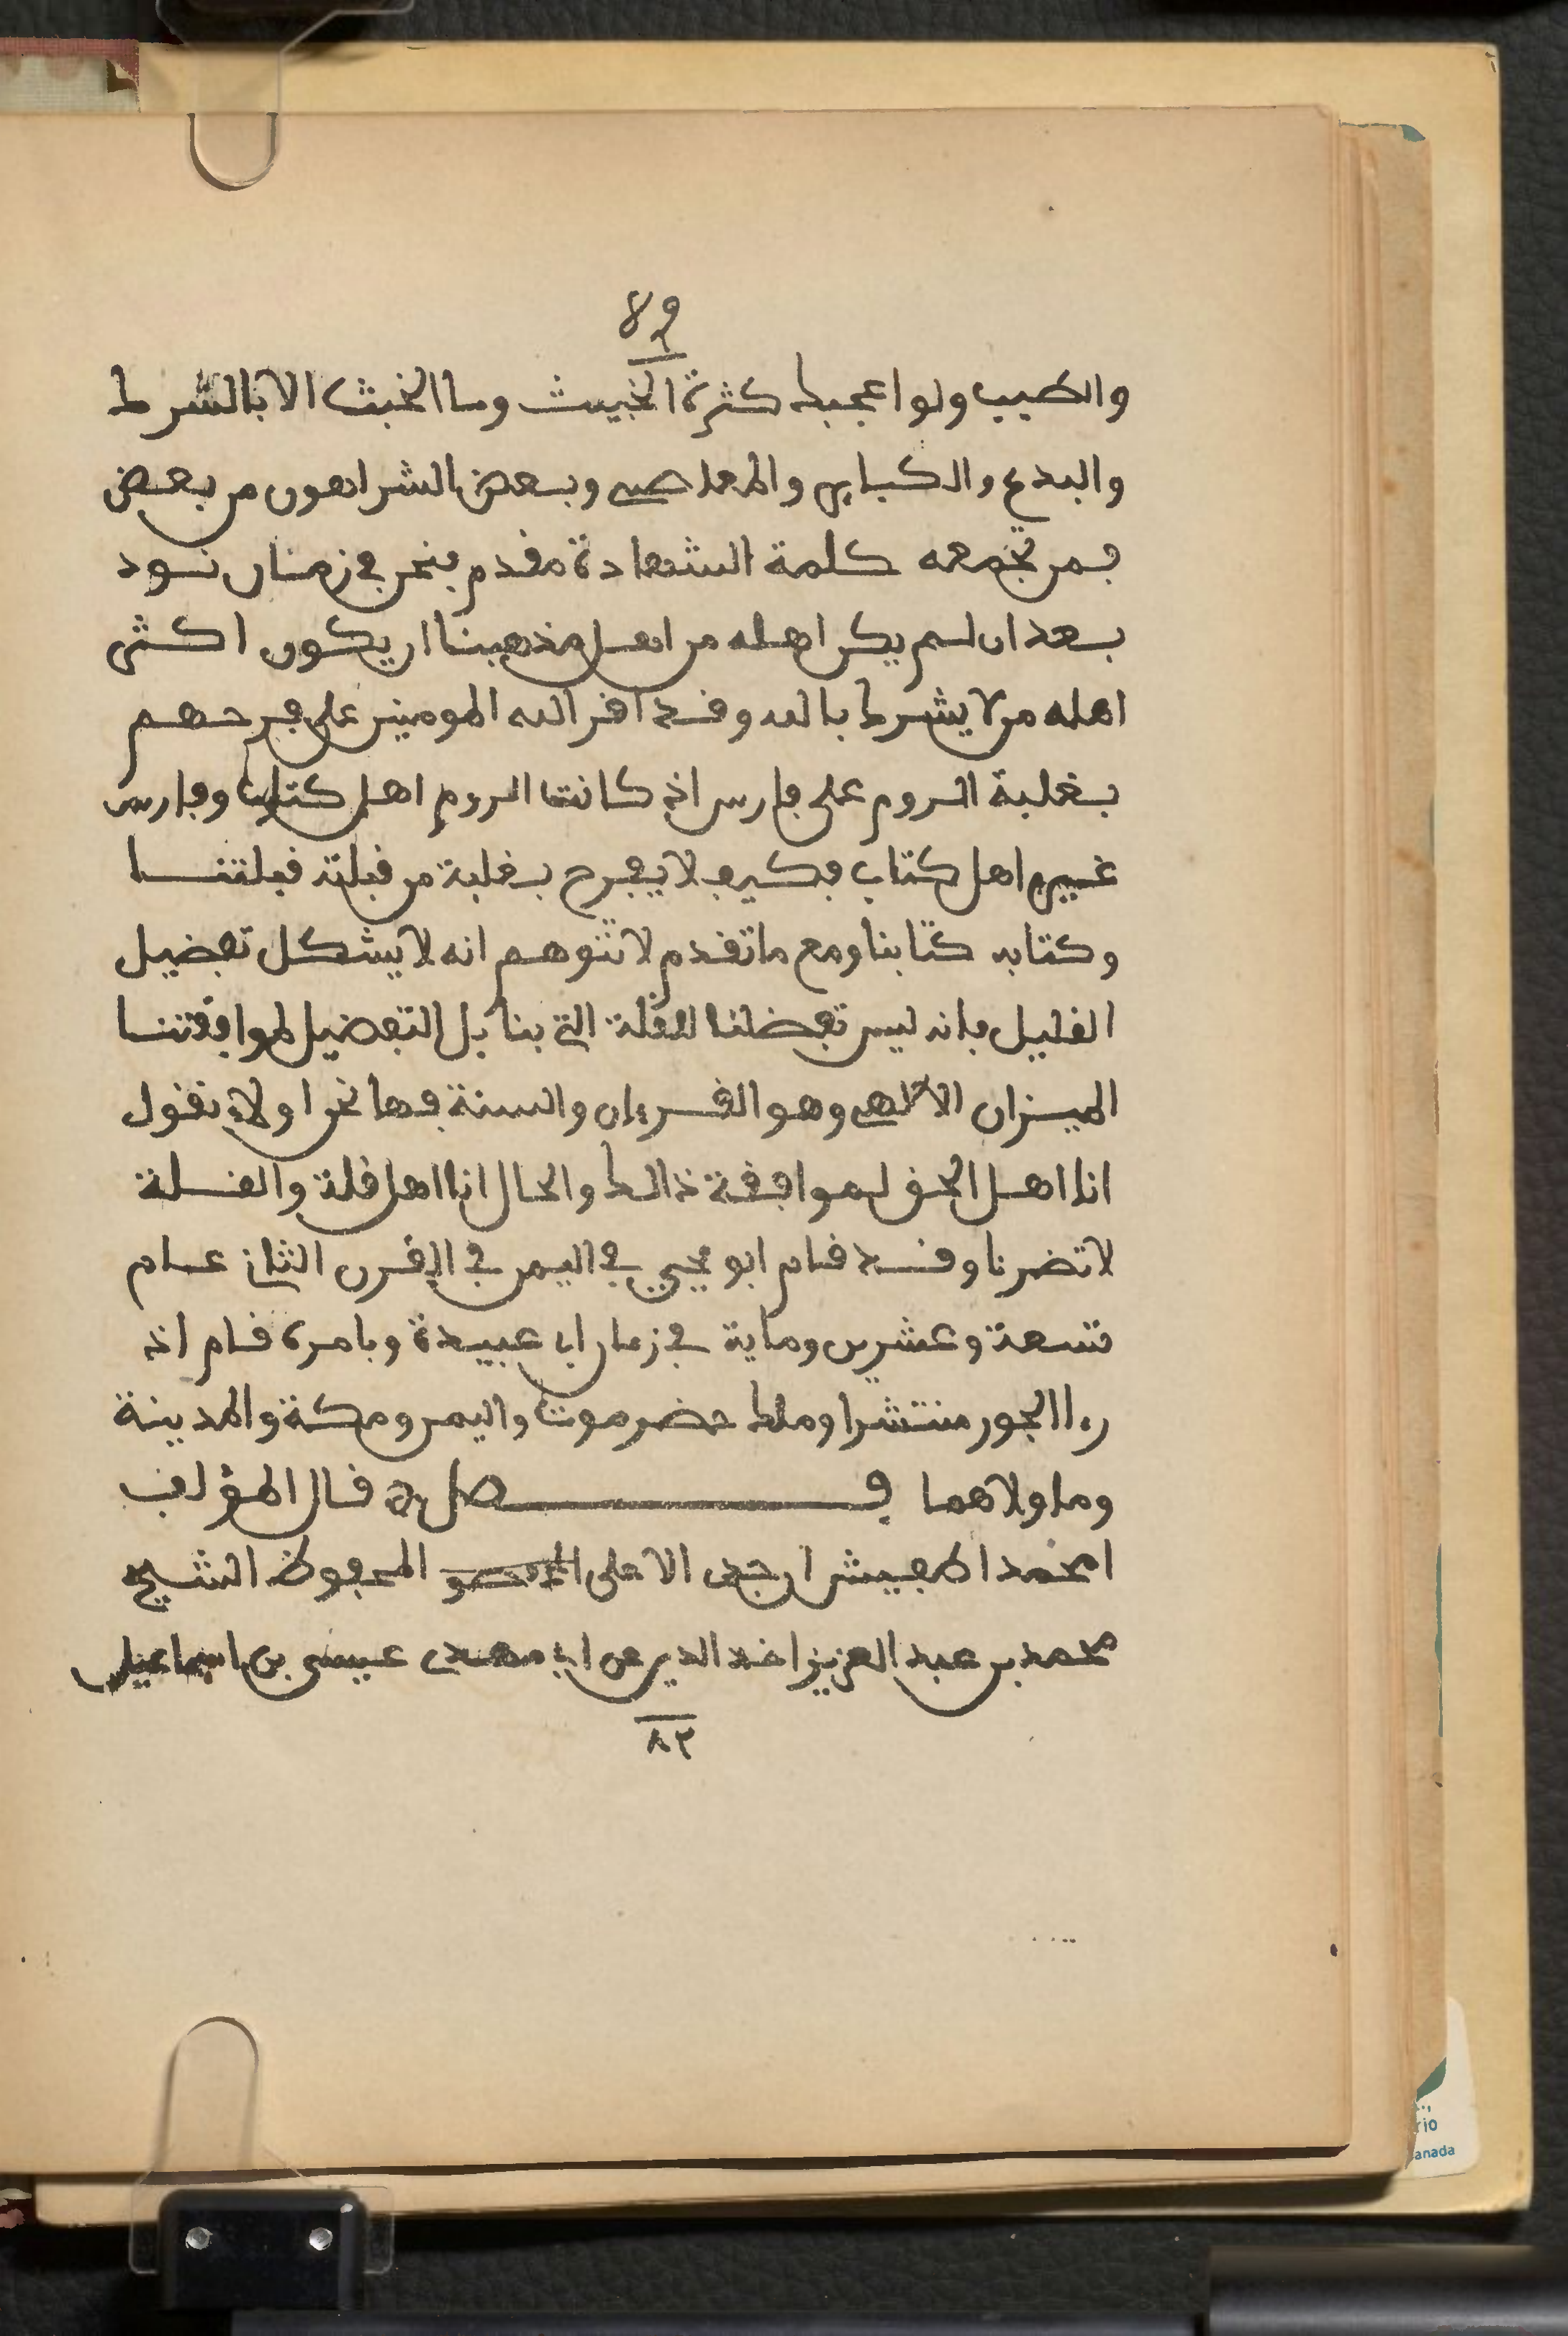 ٨٩
والطيب ولو اعجبك كثرة الخبيث وما الخبث الا بالشرك
والبدع والكباير والمعاصي وبعض الشر اهون من بعض
فمن تجمعه كلمة الشهادة مقدم فنحن في زمنان نود
بعد ان لم يكن اهله من اهل مذهبنا ان يكون اكثر
اهله من لا يشرك بالله وقد اقر الله المومنين على فرحهم
بغلبة الروم على فارس اذ كانت الروم اهل كتاب وفارس
غير اهل كتاب فكيف لا يفرح بغلبة من قبلته قبلتنا
وكتابه كتابنا ومع ما تقدم لا تتوهم انه لا يشكل تفضيل
القليل فانه ليس تفضلنا للقلة التي بنا بل التفضيل لموافقتنا
الميزان الالهي وهو القرءان والسنة فها نحن اولاء نقول
انا اهل الحق لموافقة ذالك والحال انا اهل قلة والقلة
لا تضرنا وقد قام ابو يحيي في اليمن في القرن الثاني عام
تسعة وعشرين وماية في زمان ابي عبيدة وبامره قام اذ
رءا الجور منتشرا وملك حضرموت واليمن ومكة والمدينة
وما ولاهما فصل قال المؤلف
امحمد اطفيش ارجى الاعلى المحفوظ الشيخ
محمد بن عبد العزيز اخذ الدين عن ابي مهدي عيسى بن اسماعيل
٨٣
rio
anada